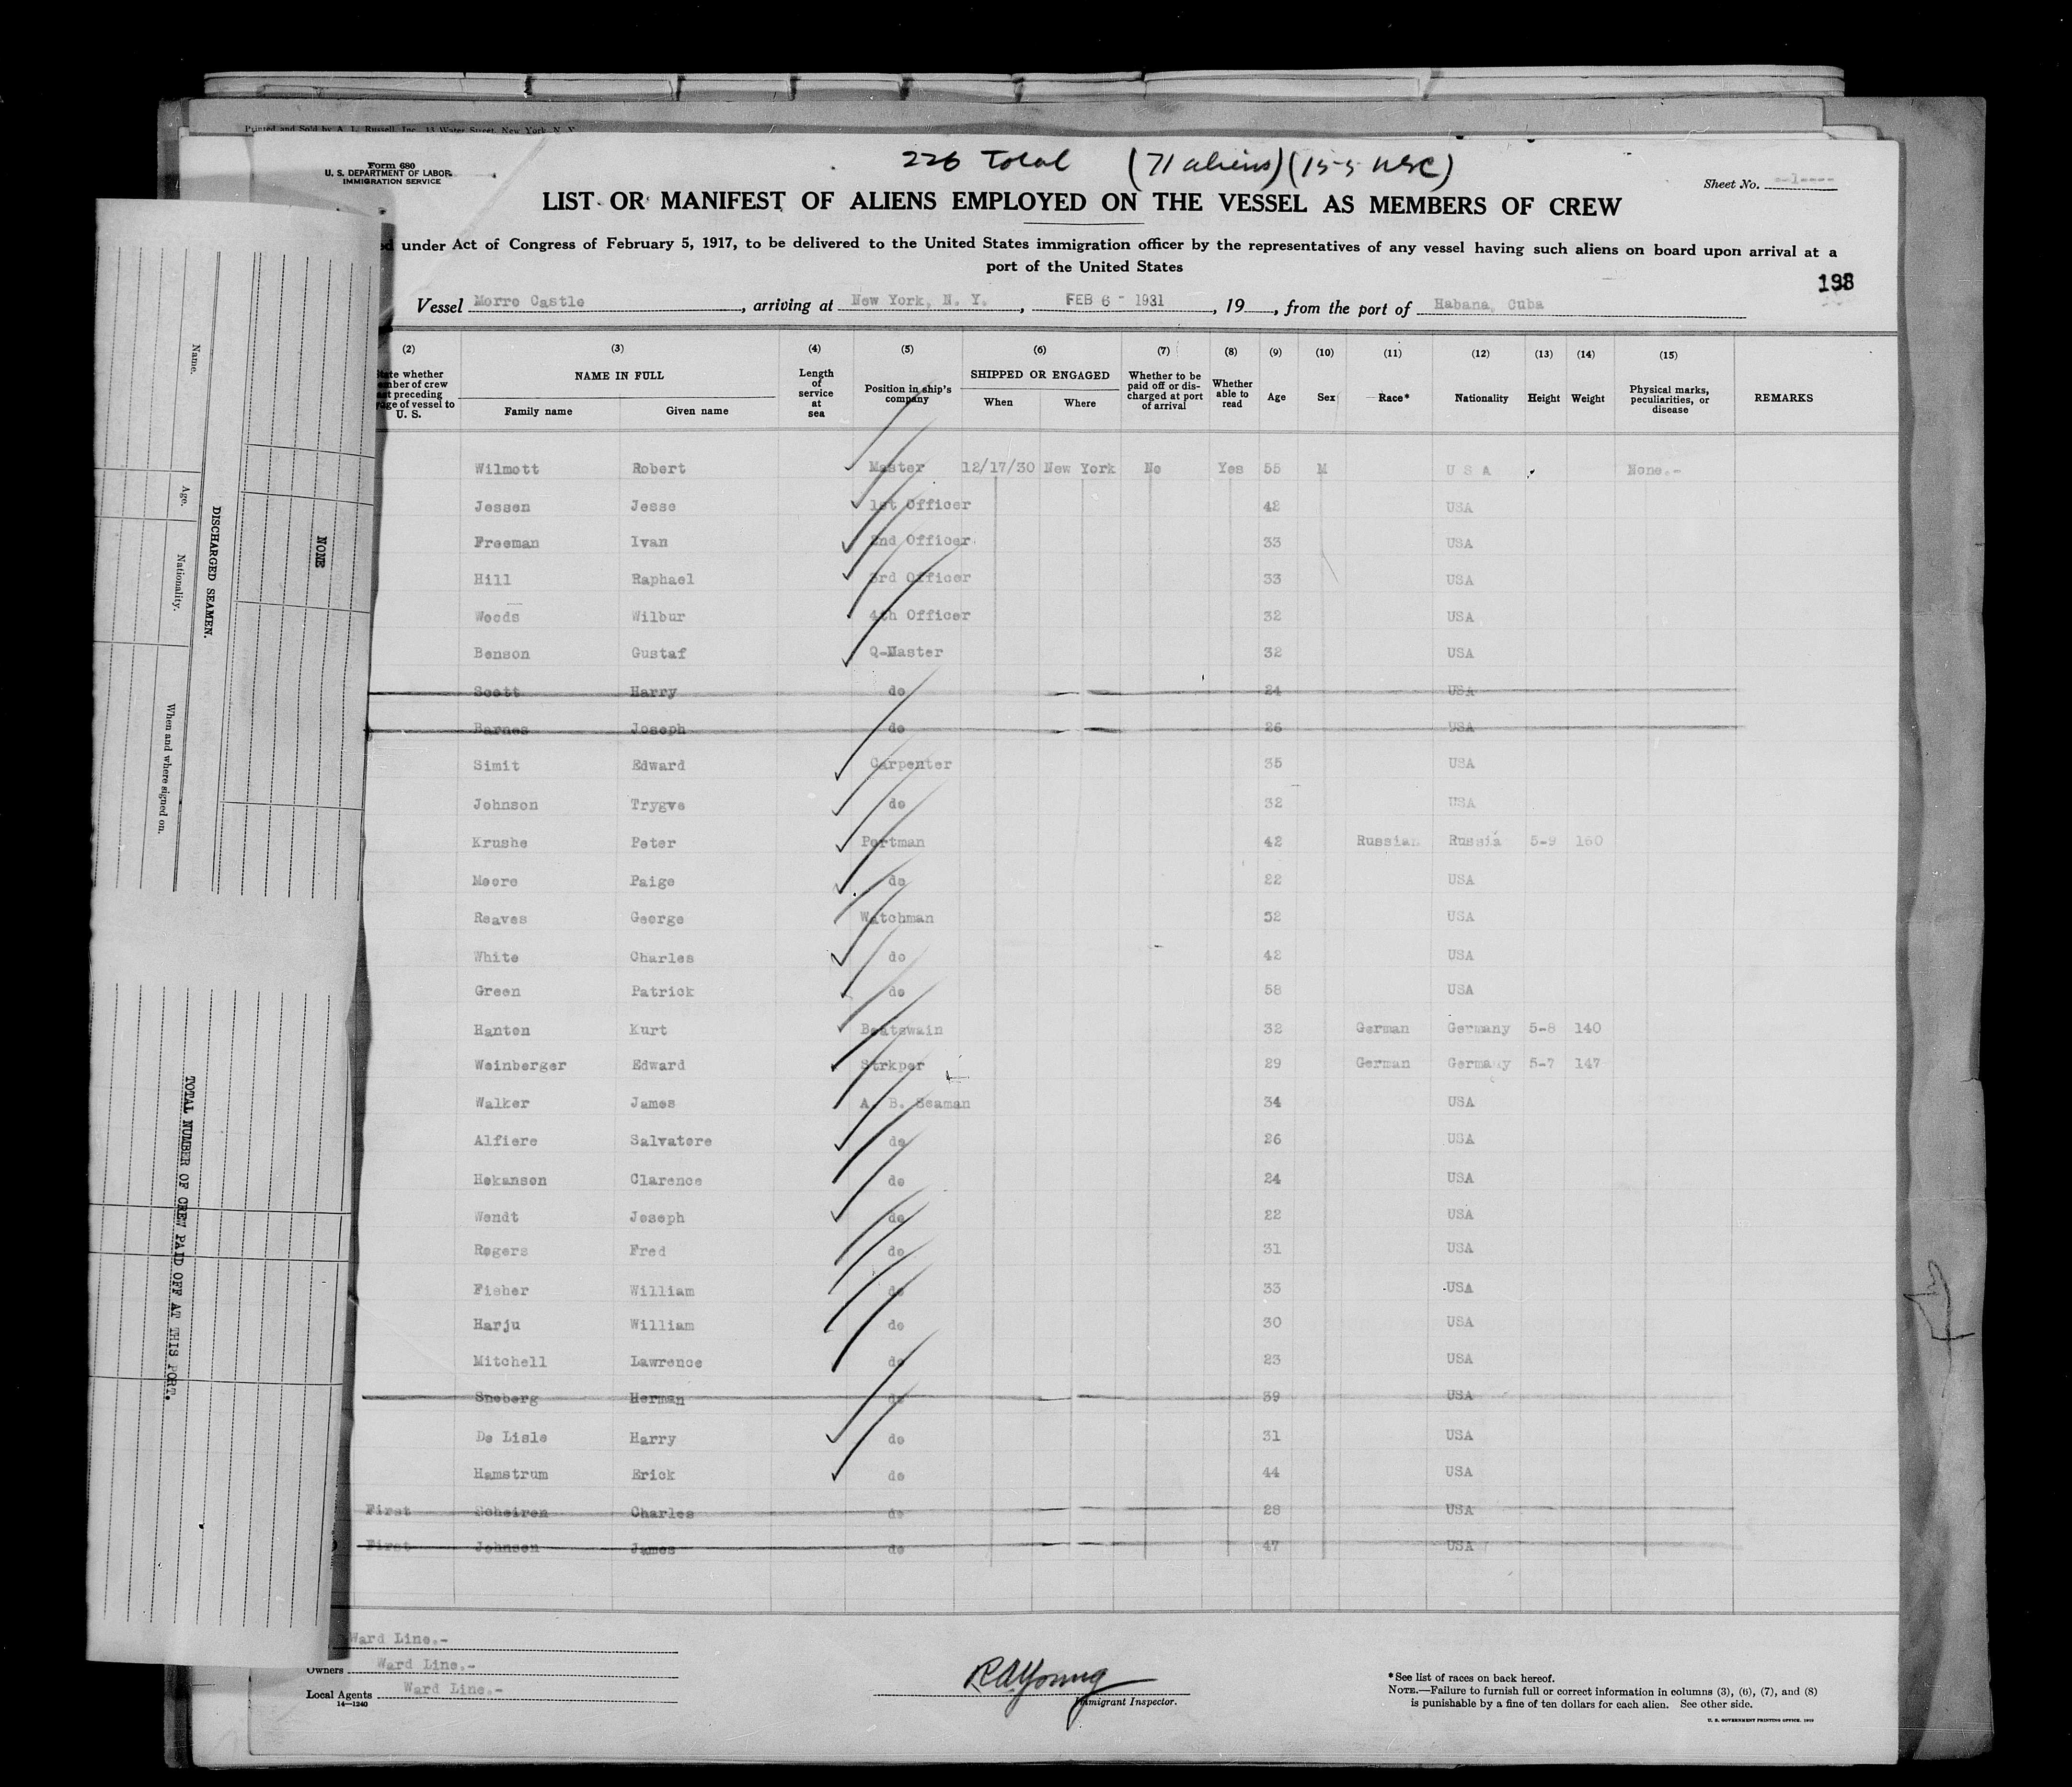 Printed and Sold by A. L. Russell, Inc., 13 Water Street, New York, N. Y.
Form 680
U. S. DEPARTMENT OF LABOR
IMMIGRATION SERVICE
226 Total (71 aliens) (155 USC)
Sheet No. -1----
LIST OR MANIFEST OF ALIENS EMPLOYED ON THE VESSEL AS MEMBERS OF CREW
under Act of Congress of February 5, 1917, to be delivered to the United States immigration officer by the representatives of any vessel having such aliens on board upon arrival at a
port of the United States
198
Vessel Morro Castle, arriving at New York, N. Y., FEB 6 - 1931, 19__, from the port of Habana, Cuba
(2) (3) (4) (5) (6) (7) (8) (9) (10) (11) (12) (13) (14) (15)
NAME IN FULL
Family name Given name
Length of service at sea
Position in ship's company
SHIPPED OR ENGAGED
When Where
Whether to be paid off or discharged at port of arrival
Whether able to read
Age Sex Race* Nationality Height Weight
Physical marks, peculiarities, or disease
REMARKS
Wilmott Robert Master 12/17/30 New York No Yes 55 M U S A None.-
Jessen Jesse 1st Officer 42 USA
Freeman Ivan 2nd Officer 33 USA
Hill Raphael 3rd Officer 33 USA
Woods Wilbur 4th Officer 32 USA
Benson Gustaf Q-Master 32 USA
Scott Harry do 24 USA
Barnes Joseph do 26 USA
Simit Edward Carpenter 35 USA
Johnson Trygve do 32 USA
Krushe Peter Portman 42 Russian Russia 5-9 160
Moore Paige do 22 USA
Reaves George Watchman 52 USA
White Charles do 42 USA
Green Patrick do 58 USA
Hanton Kurt Boatswain 32 German Germany 5-8 140
Weinberger Edward Strkper 29 German Germany 5-7 147
Walker James A. B. Seaman 34 USA
Alfiere Salvatore do 26 USA
Hokanson Clarence do 24 USA
Wendt Joseph do 22 USA
Rogers Fred do 31 USA
Fisher William do 33 USA
Harju William do 30 USA
Mitchell Lawrence do 23 USA
Snoberg Herman do 39 USA
De Lisle Harry do 31 USA
Hamstrum Erick do 44 USA
First Scheiren Charles do 28 USA
First Johnson James do 47 USA
Ward Line.-
Owners Ward Line.-
Local Agents Ward Line.-
14—1240
R A Young
Immigrant Inspector.
*See list of races on back hereof.
NOTE.—Failure to furnish full or correct information in columns (3), (6), (7), and (8)
is punishable by a fine of ten dollars for each alien. See other side.
U. S. GOVERNMENT PRINTING OFFICE.
Name. Age. Nationality. When and where signed on.
DISCHARGED SEAMEN.
NONE
TOTAL NUMBER OF CREW PAID OFF AT THIS PORT.